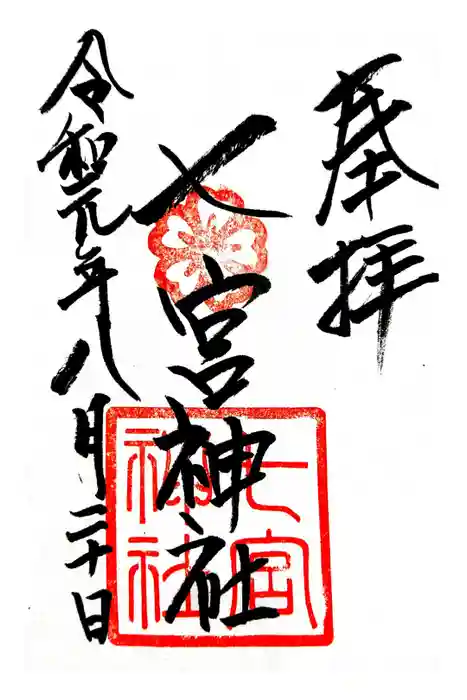 奉拝
七宮神社
令和元年八月二十日
七宮
神社